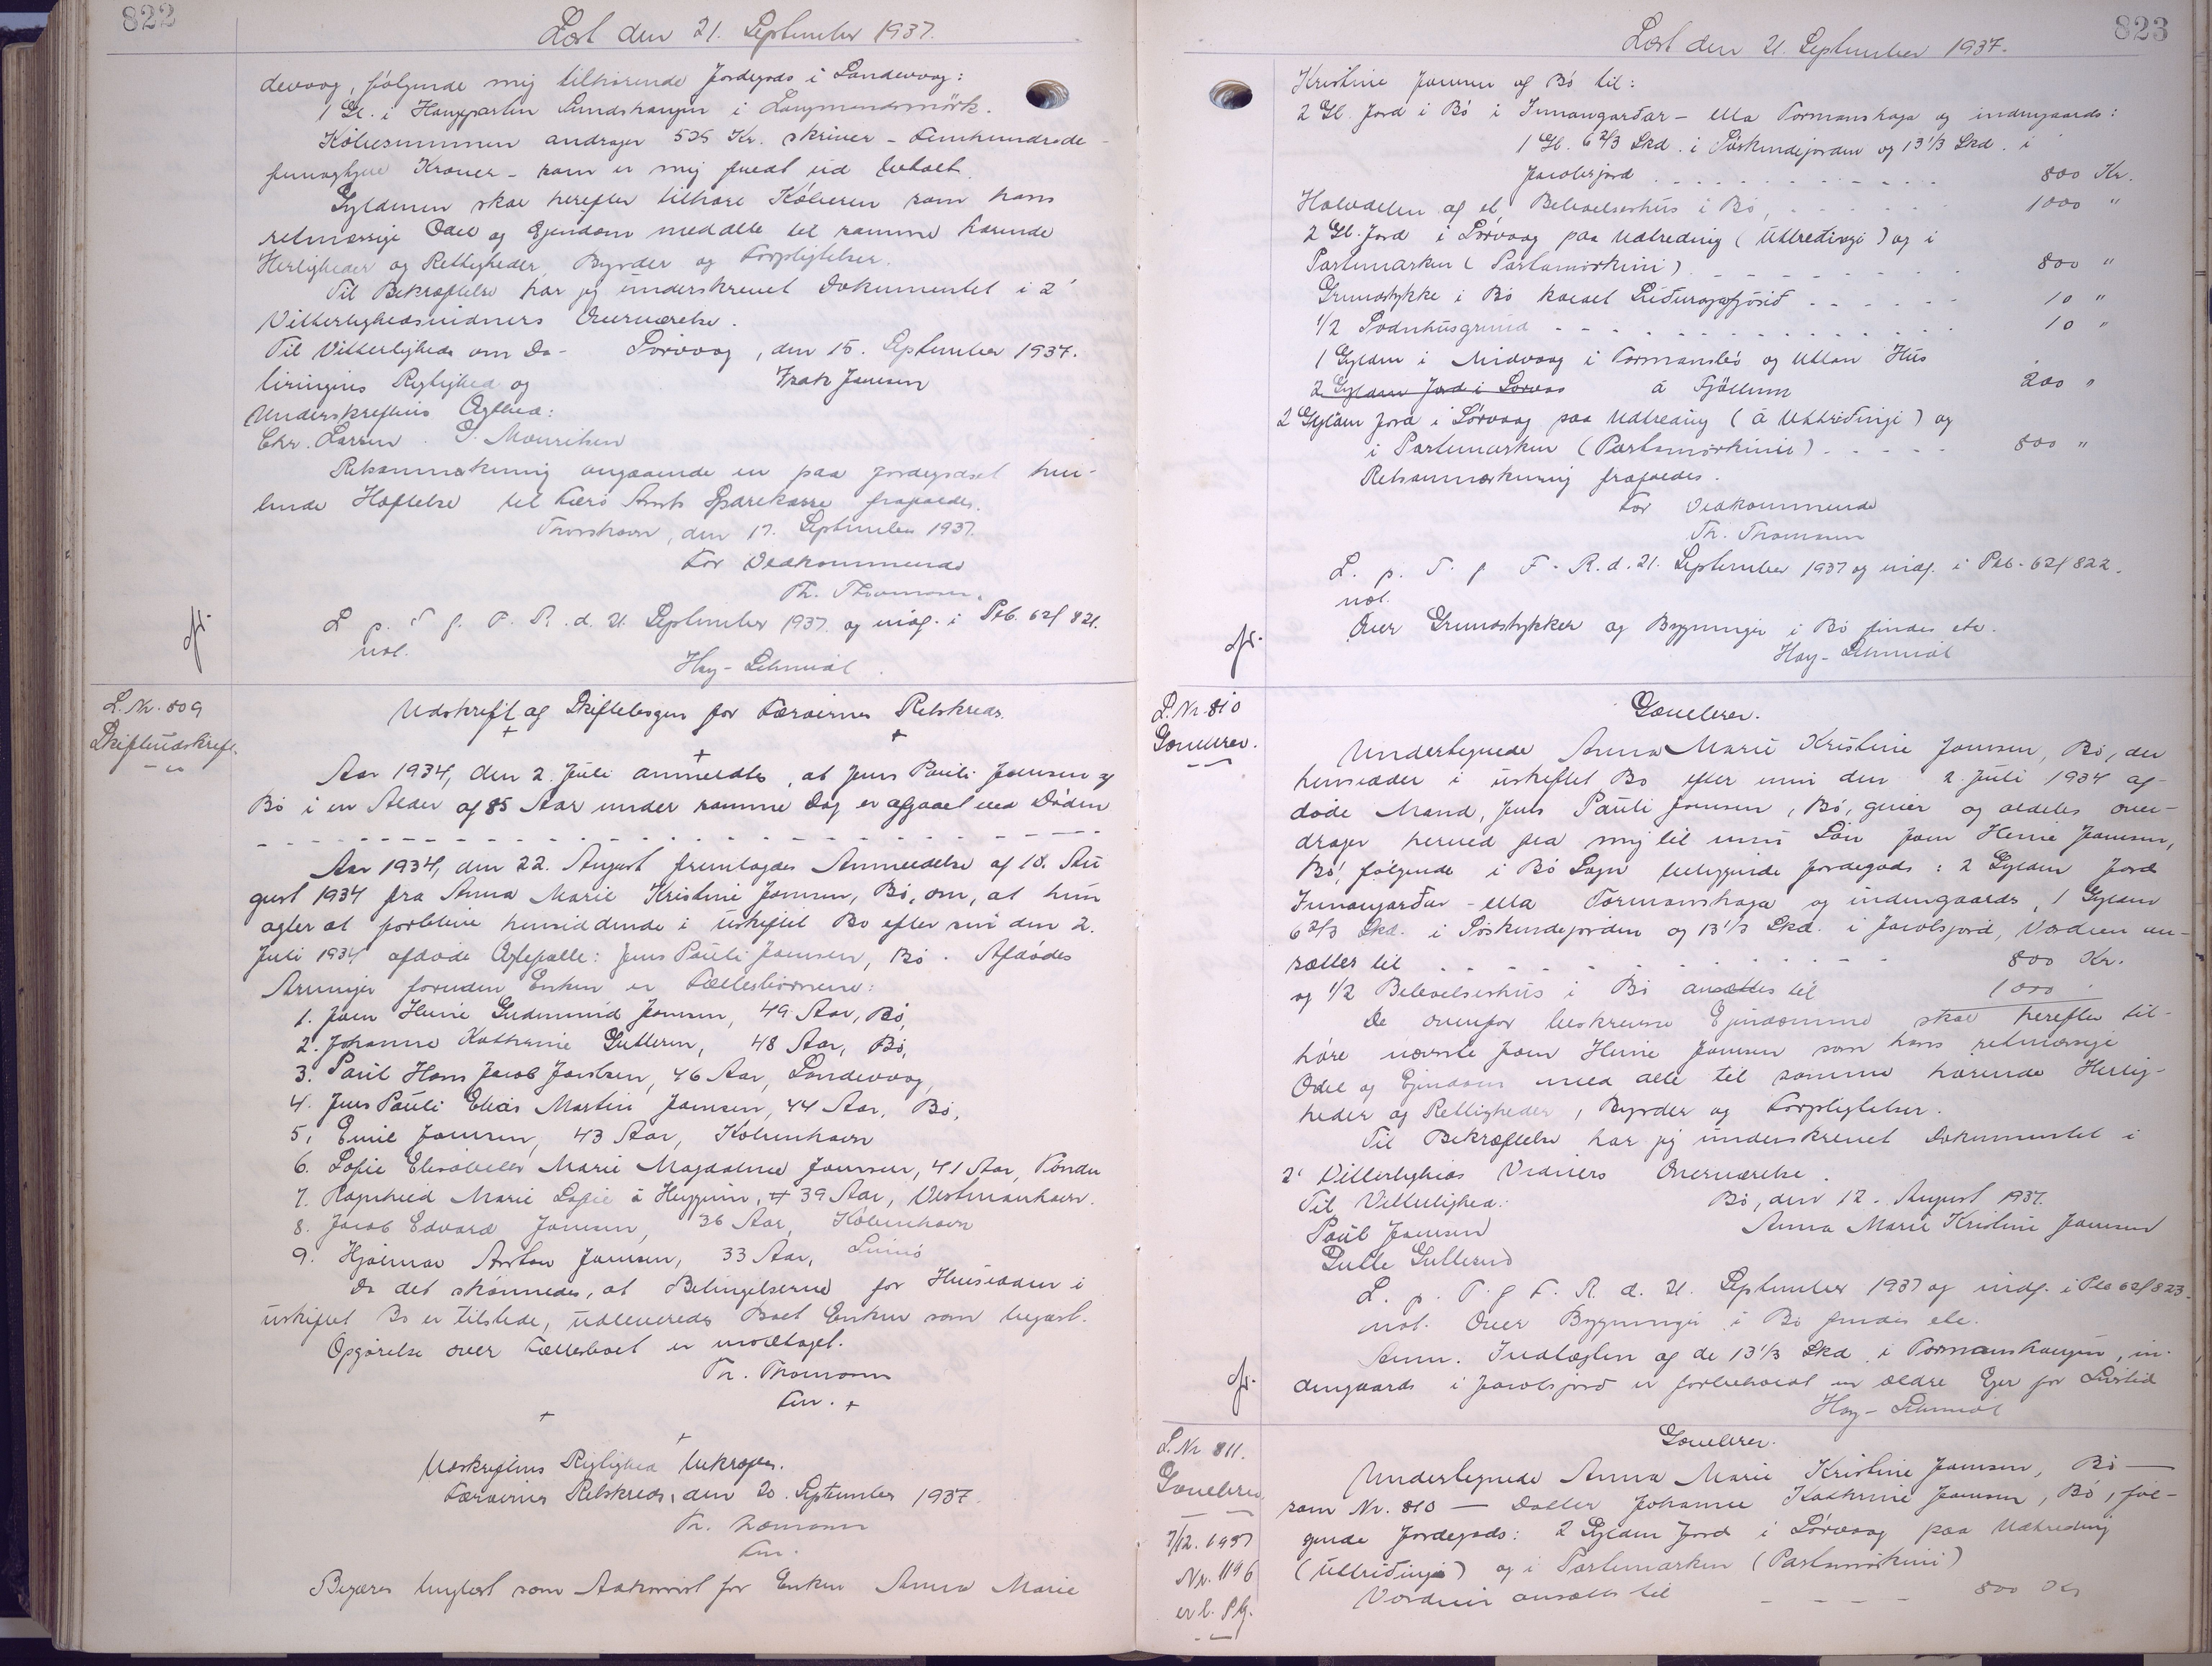 822
Læst den 21. September 1937.
devaag, følgende mig tilhørende Jordegods i Sandevaag:
1 Gl. i Haugparten Sundshaugin i
Købesummen andrager 525 Kr. skriver - Femhundrede
femogtyve Kroner - som er mig fuldt ud betalt.
Gyldenen skal herefter tilhøre Køberen som hans
retmæssige Odel og Ejendom med alle til samme hørende
Herligheder og Rettigheder, Byrder og Forpligtelser.
Til Bekræftelse har jeg underskrevet Dokumentet i 2
Vitterlighedsvidners Overværelse.
Til Vitterlighed om Da- Sørvaag, den 15. September 1937.
teringens Rigtighed og Jsak Jansen
Underskriftens Ægthed:
Chr. Larsen. D. Mouritsen
Retsanmærkning angaaende en paa Jordegodset hvi-
lende Hæftelse til Færø Amts Sparekasse frafaldes.
Thorshavn, den 17. September 1937.
For Vedkommende
Th. Thomsen.
L. p. T. f. F. R. d. 21. September 1937 og indf. i Ptb. 62f 821.
ual.
Hay-Schmidt
L. Nr. 809
Skifteudskrift.
Udskrift af Skiftebogen for Færøernes Retskreds.
Aar 1934, den 2. Juli anmeldtes, at Jens Pauli Joensen af
Bø i en Alder af 85 Aar under samme Dag er afgaaet ved Døden
Aar 1934, den 22. August fremlagdes Anmeldelse af 18. Au
gust 1934 fra Anna Marie Kristine Joensen, Bø, om, at hun
agter at forblive hensiddende i uskiftet Bo efter sin den 2.
Juli 1934 afdøde Ægtefælle: Jens Pauli Joensen, Bø. Afdødes
Arvinger foruden Enken er Fællesbørnene:
1. Joen Heine Gudmund Joensen, 49 Aar, Bø,
2. Johanne Kathrine Gulleren, 48 Aar, Bø,
3. Paul Hans Jacob Joensen, 46 Aar, Sandevaag,
4. Jens Pauli Elias Martin Joensen, 44 Aar, Bø,
5. Emil Joensen, 43 Aar, København
6. Sofie Elisabeth Marie Magdalene Joensen, 41 Aar,
7. Ragnhild Marie Sofie á Heygum, 39 Aar, Vestmanhavn.
8. Jacob Edvard Joensen, 36 Aar, København
9. Hjalmar Anton Joensen, 33 Aar,
Da det skønnedes, at Betingelserne for Hensidden i
uskiftet Bo er tilstede, udleveredes Boet Enken som begært.
Opgørelse over Fællesboet er modtaget.
Th. Thomsen
fm.
Udskriftens Rigtighed bekræftes.
Færøernes Retskreds, den 20. September 1937.
Th. Thomsen
fm.
Begæres tinglæst som Adkomst for Enken Anna Marie
823
Læst den 21. September 1937.
Kristine Joensen af Bø til:
2 Gl. Jord i Bø i Innangarðar - ella Tormanshaga og indengaards:
1 Gl. 6 2/3 Skd. i Søskendejorden og 13 1/3 Skd. i
Jacobsjord 800 Kr.
Halvdelen af et Beboelseshus i Bø, 1000 "
2 Gl. Jord i Sørvaag paa Udtreding (Uttreðingi) og i
Partemarken (Partamørkini) 800 "
Grundstykke i Bø kaldet 10 "
1/2 10 "
1 Gylden i Midvaag i Tormansbø og Uttan Hus
2 Gylden Jord i Sørvaag á Fjøllum 200 "
2 Gylden Jord i Sørvaag paa Udtreding (á Uttreðingi) og
i Partemarken (Partamørkini) 800 "
Retsanmærkning frafaldes.
For Vedkommende
Th. Thomsen
L. p. T. f. F. R. d. 21. September 1937 og indf. i Ptb. 62f 822.
ual.
Over Grundstykker og Bygninger i Bø findes ete.
Hay-Schmidt
L. Nr. 810
Gavebrev.
Gavebrev.
Undertegnede Anna Marie Kristine Joensen, Bø, der
hensidder i uskiftet Bo efter min den 2. Juli 1934 af-
døde Mand, Jens Pauli Joensen, Bø, giver og aldeles over-
drager herved fra mig til min Søn Joen Heine Joensen,
Bø, følgende i Bø Sogn beliggende Jordegods: 2 Gylden Jord
Innangarðar - ella Tormanshaga og indengaards, 1 Gylden
6 2/3 Skd. i Søskendejorden og 13 1/3 Skd. i Jacobsjord, Værdien an-
sættes til 800 Kr.
og 1/2 Beboelseshus i Bø ansættes til 1000 "
De ovenfor beskrevne Ejendomme skal herefter til-
høre nævnte Joen Heine Joensen som hans retmæssige
Odel og Ejendom med alle til samme hørende Herlig-
heder og Rettigheder, Byrder og Forpligtelser.
Til Bekræftelse har jeg underskrevet Dokumentet i
2 Vitterligheds Vidners Overværelse.
Til Vitterlighed: Bø, den 12. August 1937.
Paul Joensen Anna Marie Kristine Joensen
Gutte Gutteren
L. p. T. f. F. R. d. 21. September 1937 og indf. i Ptb 62f 823.
ual. Over Bygninger i Bø findes ete.
Anm. Indtægten af de 13 1/3 Skd. i Tormanshaugin, in-
dengaards i Jacobsjord er forbeholdt en ældre Ejer for Livstid
Hay-Schmidt
L. Nr 811.
Gavebrev
7/12. 1957
Nr. 1196
Gavebrev.
Undertegnede Anna Marie Kristine Joensen, Bø —
som Nr. 810 — Datter Johanne Kathrine Joensen, Bø, føl-
gende Jordegods: 2 Gylden Jord i Sørvaag paa Udtreding
(Uttreðingi) og i Partemarken (Partamørkini)
Værdien ansættes til 800 Kr